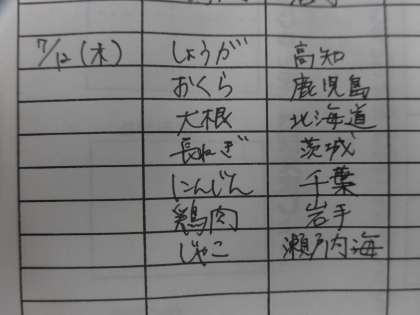 7/12(木) しょうが 高知
おくら 鹿児島
大根 北海道
長ねぎ 茨城
にんじん 千葉
鶏肉 岩手
じゃこ 瀬戸内海